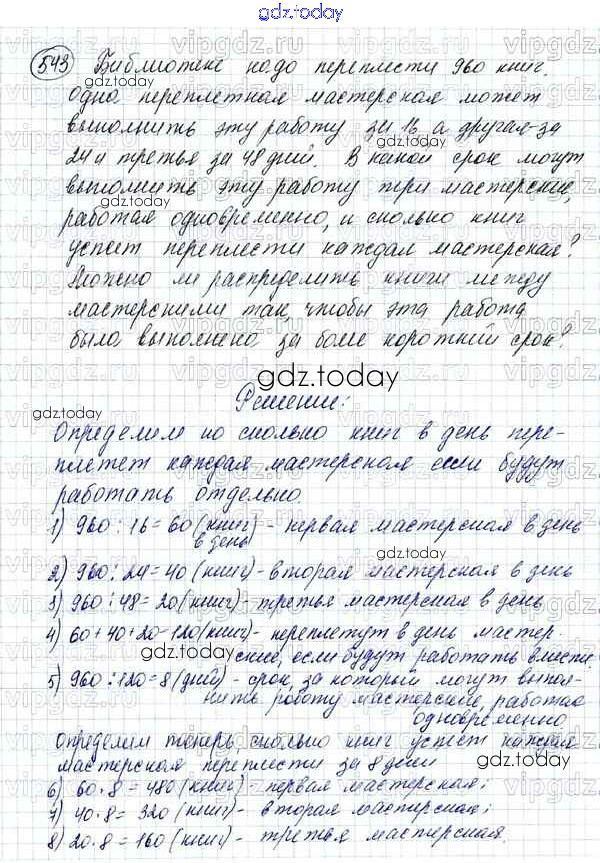 gdz.today
543 Библиотеке надо переплести 960 книг.
Одна переплетная мастерская может
выполнить эту работу за 16 а другая-за
24 и третья за 48 дней. В какой срок могут
выполнить эту работу три мастерские,
работая одновременно, и сколько книг
успеет переплести каждая мастерская?
Можно ли распределить книги между
мастерскими так, чтобы эта работа
была выполнено за более короткий срок?
gdz.today
Решение:
Определим по сколько книг в день пере-
плетет каждая мастерская если будут
работать отдельно.
1) 960 : 16 = 60 (книг) - первая мастерская в день
в день
2) 960 : 24 = 40 (книг) - вторая мастерская в день
3) 960 : 48 = 20 (книг) - третья мастерская в день
4) 60 + 40 + 20 - 120 (книг) - переплетут в день мастер.
ские, если будут работать вместе.
5) 960 : 120 = 8 (дней) - срок, за который могут выпол-
нить работу мастерские, работая
одновременно
Определим теперь, сколько книг успеет каждая
мастерская переплести за 8 дней
6) 60 · 8 = 480 (книг) - первая мастерская;
7) 40 · 8 = 320 (книг) - вторая мастерская;
8) 20 · 8 = 160 (книг) - третья мастерская.